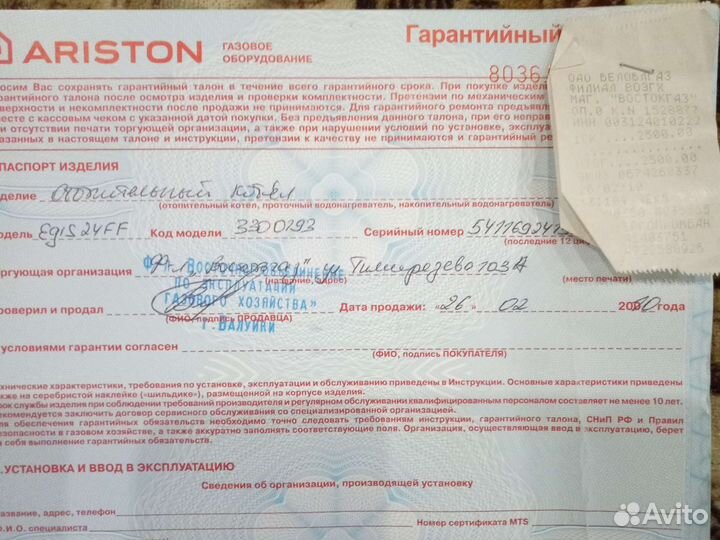 ARISTON
ГАЗОВОЕ
ОБОРУДОВАНИЕ
Гарантийный
8036
осим Вас сохранять гарантийный талон в течение всего гарантийного срока. При покупке издел
арантийного талона после осмотра изделия и проверки комплектности. Претензии по механическим
верхности и некомплектности после продажи не принимаются. Для гарантийного ремонта предъявля
есте с кассовым чеком с указанной датой покупки. Без предъявления данного талона, при его непра
и отсутствии печати торгующей организации, а также при нарушении условий по установке, эксплуа
азанных в настоящем талоне и инструкции, претензии к качеству не принимаются и гарантийный ре
ОАО БЕЛОБЛГАЗ
ФИЛИАЛ ВОЭГХ
МАГ. "ВОСТОКГАЗ"
2500.00
2500.00
ПАСПОРТ ИЗДЕЛИЯ
делие Отопительный котел
(отопительный котел, проточный водонагреватель, накопительный водонагреватель)
одель Egis 24 FF Код модели 3300293 Серийный номер
(последние 12 ци
оргующая организация Тимирязева
(название, адрес) (место печати)
ПО ЭКСПЛУАТАЦИИ
ГАЗОВОГО ХОЗЯЙСТВА»
г. ВАЛУЙКИ
роверил и продал Дата продажи: «26» 02 года
(ФИО, подпись ПРОДАВЦА)
условиями гарантии согласен
(ФИО, подпись ПОКУПАТЕЛЯ)
хнические характеристики, требования по установке, эксплуатации и обслуживанию приведены в Инструкции. Основные характеристики приведены
кже на серебристой наклейке («шильдике»), размещенной на корпусе изделия.
рок службы изделия при соблюдении требований производителя и регулярном обслуживании квалифицированным персоналом составляет не менее 10 лет.
екомендуется заключить договор сервисного обслуживания со специализированной организацией.
ля обеспечения гарантийных обязательств необходимо точно следовать требованиям инструкции, гарантийного талона, СНиП РФ и Правил
езопасности в газовом хозяйстве, а также аккуратно заполнять соответствующие поля. Организация, осуществляющая ввод в эксплуатацию, берет
а себя выполнение гарантийных обязательств.
.УСТАНОВКА И ВВОД В ЭКСПЛУАТАЦИЮ
Сведения об организации, производящей установку
азвание, адрес, телефон
.И.О. специалиста Номер сертификата MTS
Avito